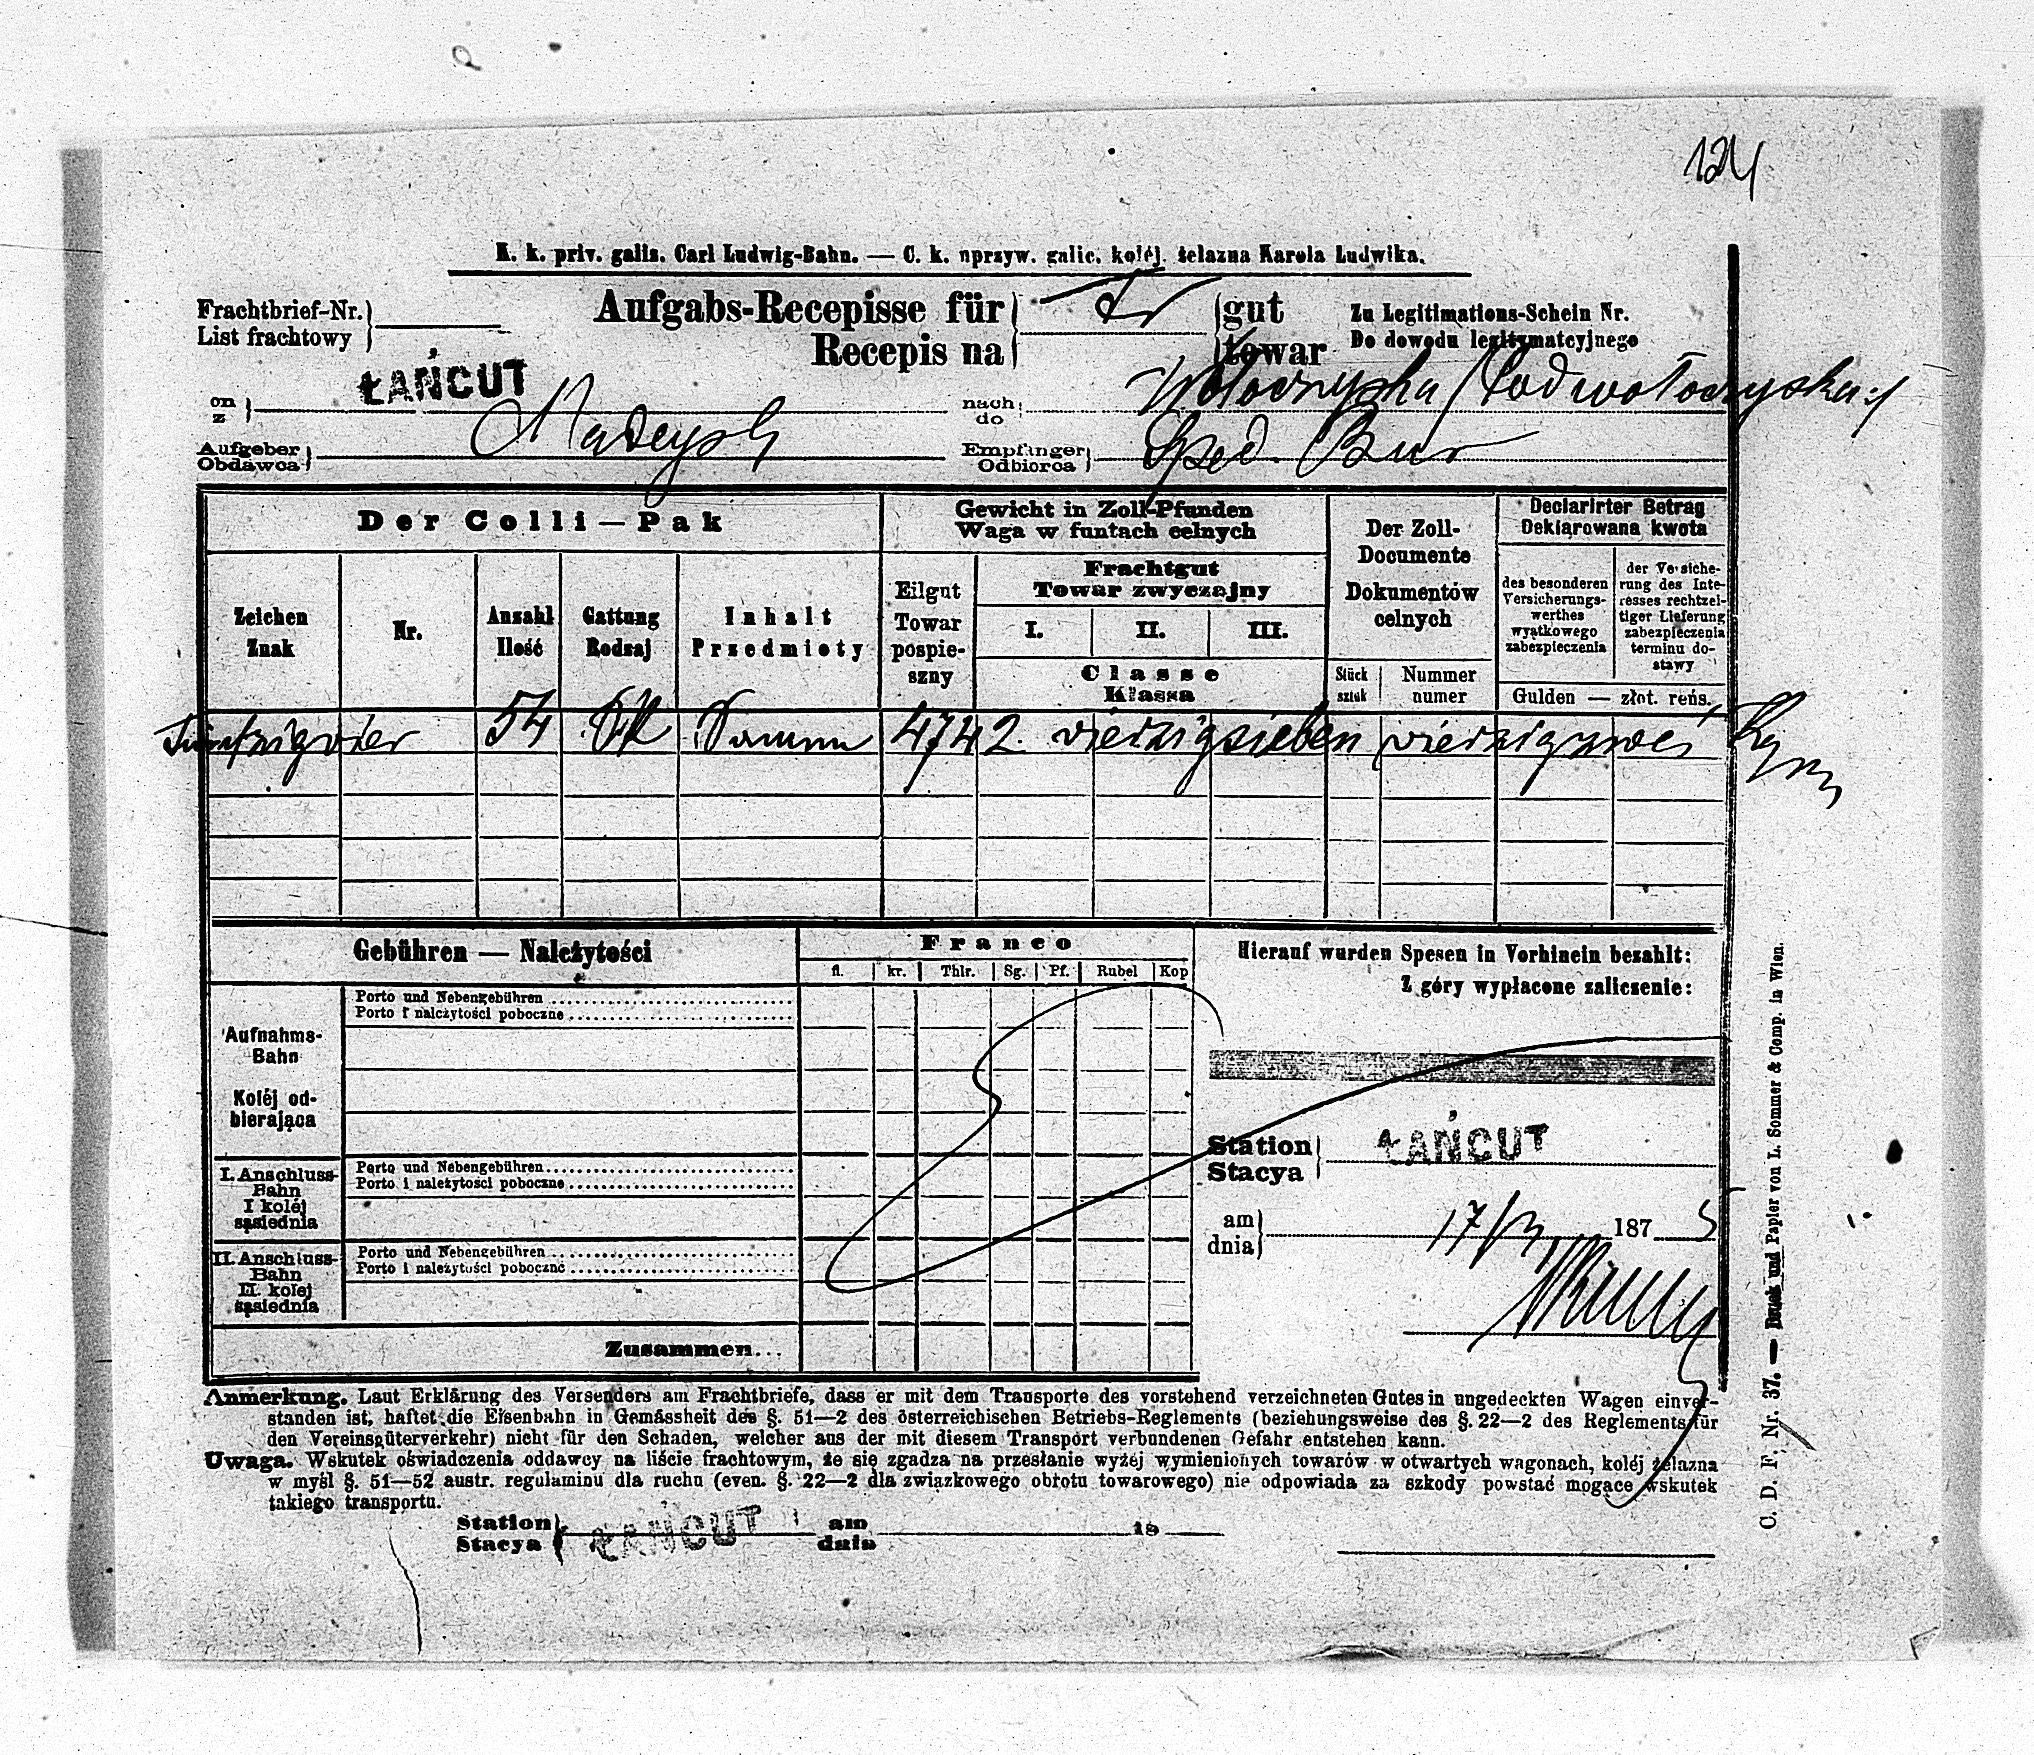 124
K. k. priv. galiz. Carl Ludwig-Bahn. — C. k. uprzyw. galic. koléj. żelazna Karola Ludwika.
Frachtbrief-Nr.
List frachtowy
Aufgabs-Recepisse für Fr gut
Recepis na towar
Zu Legitimations-Schein Nr.
Do dowodu legitymatcyjnego
on
z
ŁAŃCUT
nach
do
Wołoczyska / Podwołoczyska
Aufgeber
Obdawca
Madeyski
Empfänger
Odbiorca
Sped. Bur
Der Colli — Pak
Gewicht in Zoll-Pfunden
Waga w funtach celnych
Der Zoll-
Documente
Dokumentów
celnych
Declarirter Betrag
Deklarowana kwota
Zeichen
Znak
Nr.
Anzahl
Ilość
Gattung
Rodzaj
Inhalt
Przedmioty
Eilgut
Towar
pospie-
szny
Frachtgut
Towar zwyczajny
I. II. III.
Classe
Klassa
Stück
sztuk
Nummer
numer
des besonderen
Versicherungs-
werthes
wyątkowego
zabezpieczenia
der Versiche-
rung des Inte-
resses rechtzei-
tiger Lieferung
zabezpieczenia
terminu do-
stawy
Gulden — złot. reńs.
Fünfzigvier 54 4742 vierzigsieben vierzigzwei
Gebühren — Należytości
Franco
fl. kr. Thlr. Sg. Pf. Rubel Kop
Hierauf wurden Spesen in Vorhinein bezahlt:
Z góry wypłacone zaliczenie:
Aufnahms-
Bahn
Koléj od-
bierająca
Porto und Nebengebühren
Porto i należytości poboczne
I. Anschluss-
Bahn
I koléj
sąsiednia
Porto und Nebengebühren
Porto i należytości poboczne
II. Anschluss-
Bahn
II. kolej
sąsiednia
Porto und Nebengebühren
Porto i należytości poboczne
Zusammen...
Station
Stacya
ŁAŃCUT
am
dnia
17/3 1875
Anmerkung. Laut Erklärung des Versenders am Frachtbriefe, dass er mit dem Transporte des vorstehend verzeichneten Gutes in ungedeckten Wagen einver-
standen ist, haftet die Eisenbahn in Gemässheit des §. 51—2 des österreichischen Betriebs-Reglements (beziehungsweise des §. 22—2 des Reglements für
den Vereinsgüterverkehr) nicht für den Schaden, welcher aus der mit diesem Transport verbundenen Gefahr entstehen kann.
Uwaga. Wskutek oświadczenia oddawcy na liście frachtowym, że się zgadza na przesłanie wyżej wymienionych towarów w otwartych wagonach, koléj żelazna
w myśl §. 51—52 austr. regulaminu dla ruchu (even. §. 22—2 dla związkowego obrotu towarowego) nie odpowiada za szkody powstać mogące wskutek
takiego transportu.
Station
Stacya
ŁAŃCUT
am
dnia
18
C. D. F. Nr. 37. — Druck und Papier von L. Sommer & Comp. in Wien.